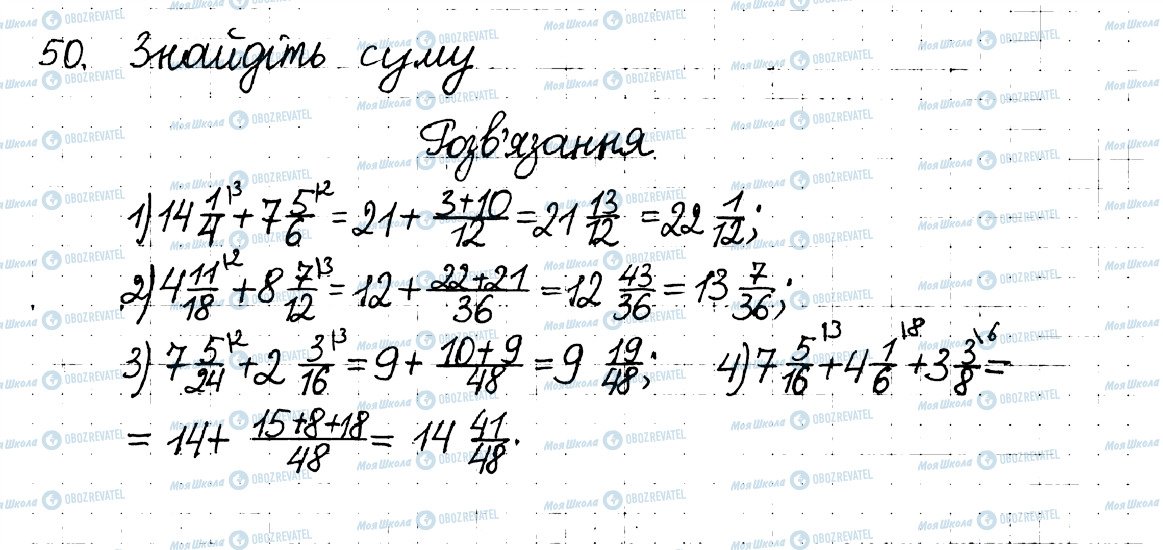 50. Знайдіть суму
Розв'язання.
1) 14 1/4 |3 + 7 5/6 |2 = 21 + (3+10)/12 = 21 13/12 = 22 1/12;
2) 4 11/18 |2 + 8 7/12 |3 = 12 + (22+21)/36 = 12 43/36 = 13 7/36;
3) 7 5/24 |2 + 2 3/16 |3 = 9 + (10+9)/48 = 9 19/48; 4) 7 5/16 |3 + 4 1/6 |8 + 3 3/8 \6 =
= 14 + (15+8+18)/48 = 14 41/48.